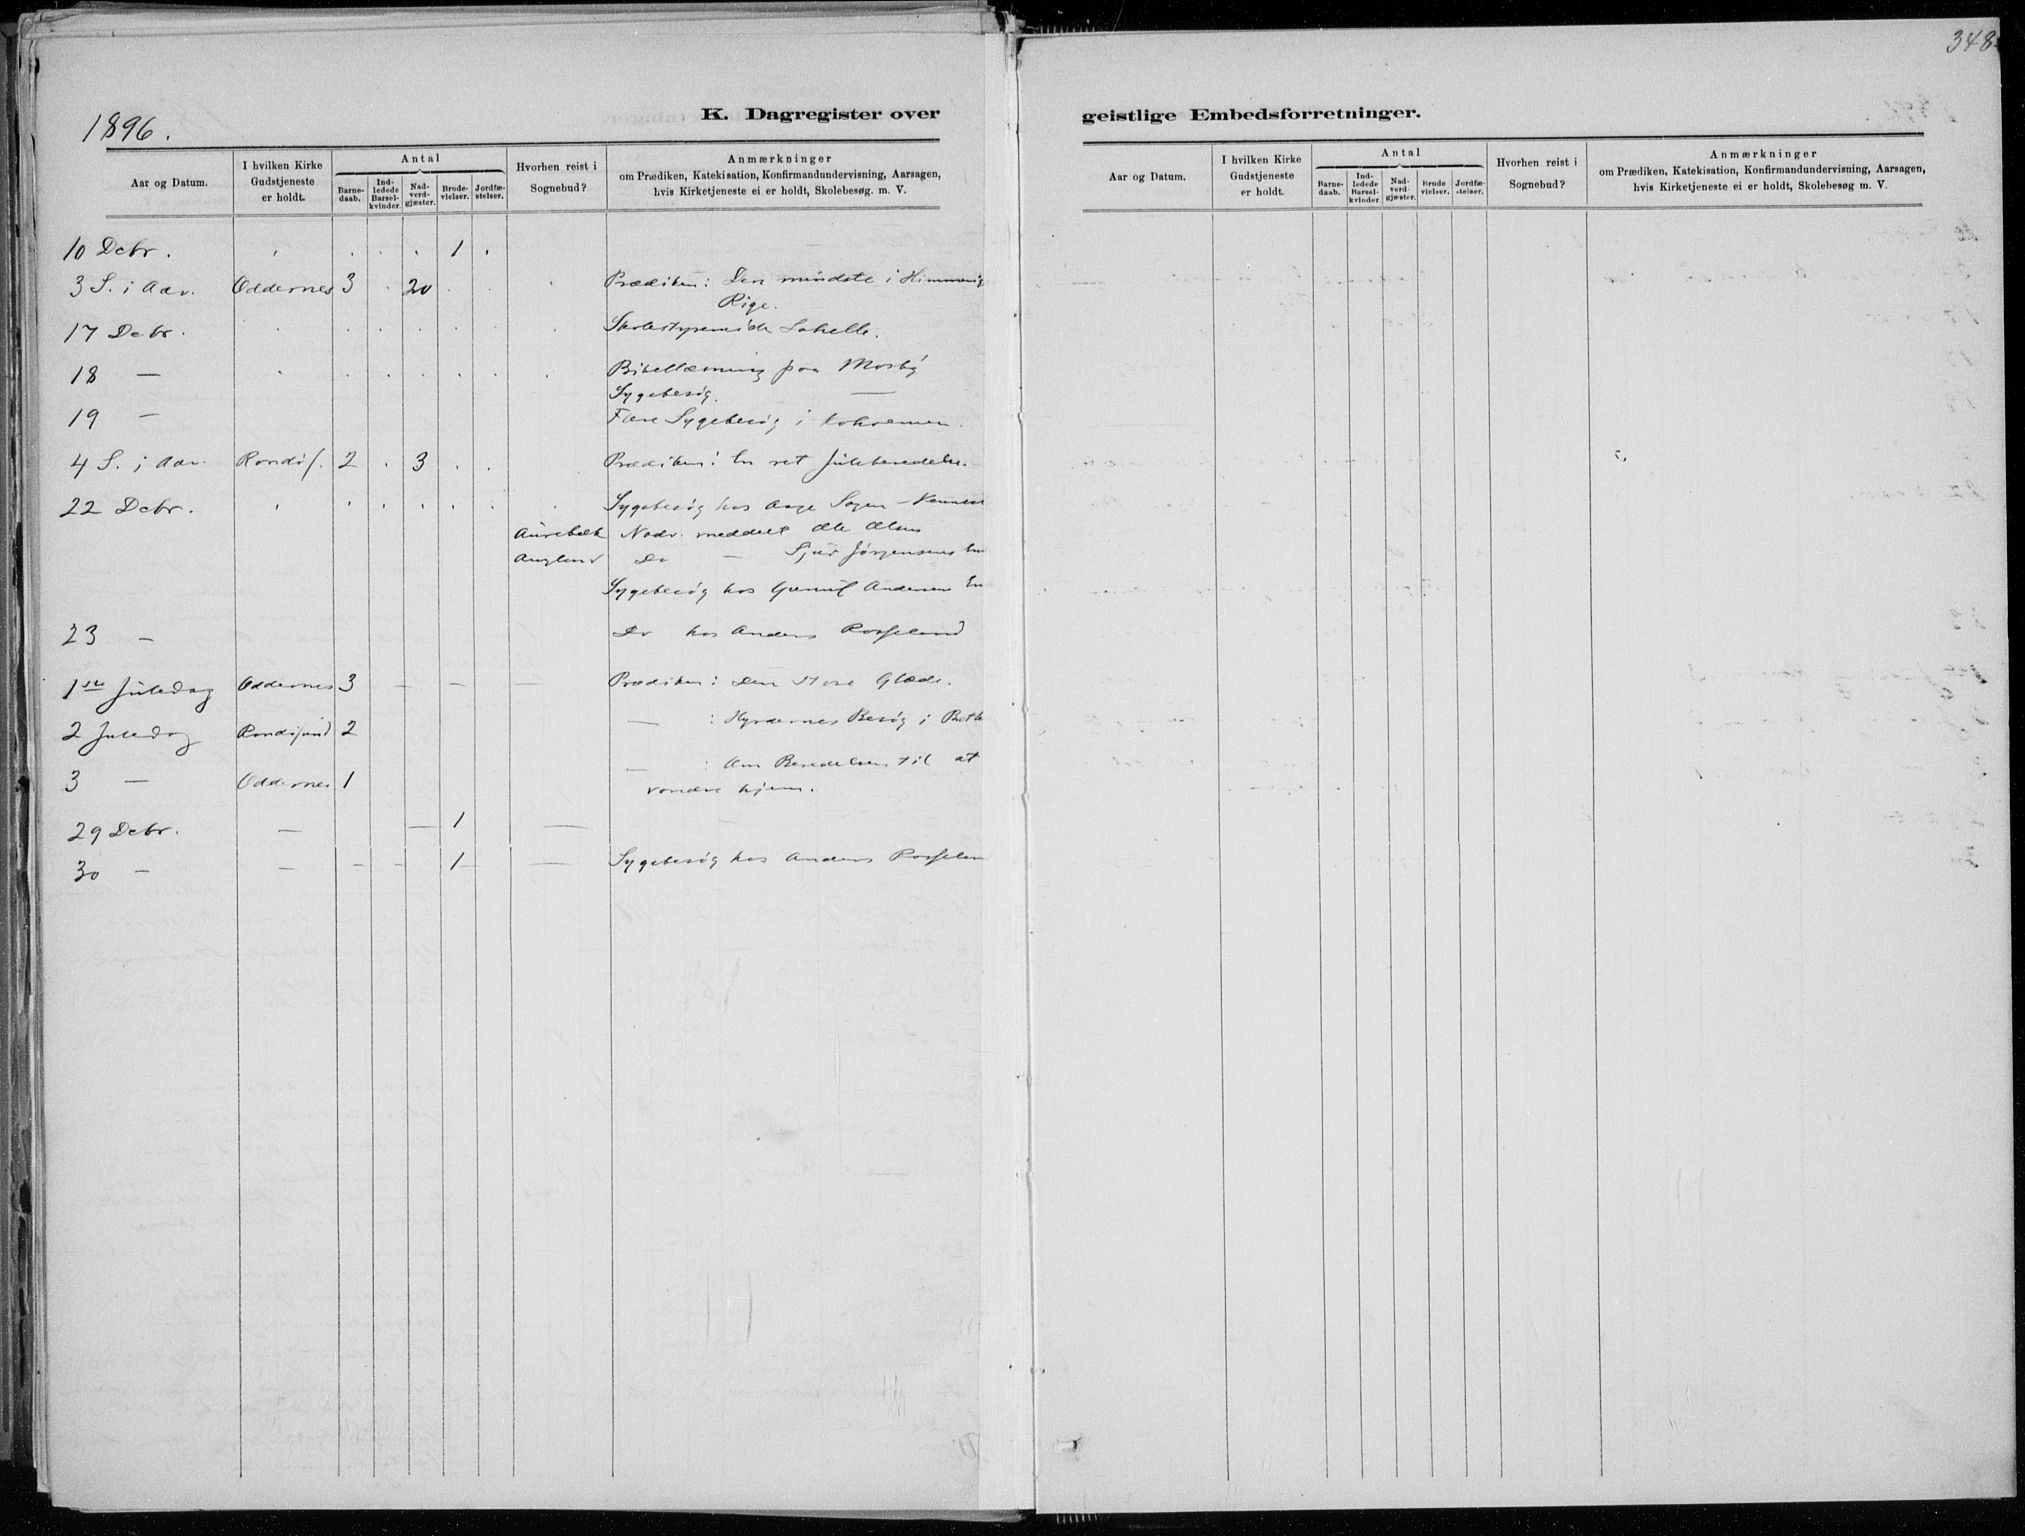 348
1896.
K. Dagregister over
geistlige Embedsforretninger.
Aar og Datum.
I hvilken Kirke
Gudstjeneste
er holdt.
Antal
Barne-
daab.
Ind-
ledede
Barsel-
kvinder.
Nad-
verd-
gjæster.
Brude-
vielser.
Jordfæ-
stelser.
Hvorhen reist i
Sognebud?
Anmærkninger
om Prædiken, Katekisation, Konfirmandundervisning, Aarsagen,
hvis Kirketjeneste ei er holdt, Skolebesøg. m. V.
10 Debr. 1
3 S. i Adv. Oddernes 3 20 Prædiken: Den mindste i Himmerig
Rige.
17 Debr.
18 — Bibellæsning paa Mosby
Sygebesøg. —
19 — Sygebesøg i
4 S. i Adv. Randøs. 2 3 Prædiken: En ret Juleberedelse.
22 Debr. Sygebesøg hos Aage
Aurebæk Nadv. meddelt Ole Olsen
Augland Do — Sjur Jørgensens
Sygebesøg hos Andersen
23 — Do hos Anders Rosseland
1ste Juledag Oddernes 3 — — — Prædiken: Den store Glæde.
2 Juledag Randøsund 2 — : Hyrdernes Besøg i Betl
3 — Oddernes 1 — : Om Beredelsen til at
vandre hjem.
29 Debr. — — 1 —
30 — — — — 1 — Sygebesøg hos Anders Rosselan
Aar og Datum.
I hvilken Kirke
Gudstjeneste
er holdt.
Antal
Barne-
daab.
Ind-
ledede
Barsel-
kvinder.
Nad-
verd-
gjæster.
Brude
vielser.
Jordfæ-
stelser.
Hvorhen reist i
Sognebud?
Anmærkninger
om Prædiken, Katekisation, Konfirmandundervisning, Aarsagen,
hvis Kirketjeneste ei er holdt, Skolebesøg m. V.